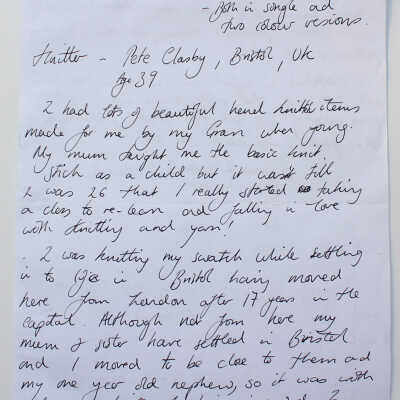 - Both in single and
two colour vesions.
Knitter - Pete Clasby, Bristol, UK
Age 39
I had lots of beautiful hand knitted items
made for me by my Gran when young.
My mum taught me the basic knit
stich as a child but it wasn't till
I was 26 that I really started taking
a class to re-learn and falling in love
with knitting and yarn!
. I was knitting my swatch while settling
in to life in Bristol having moved
here from London after 17 years in the
capital. Although not from here my
mum & sister have settled in Bristol
and I moved to be close to them and
my one year old nephew, so it was with